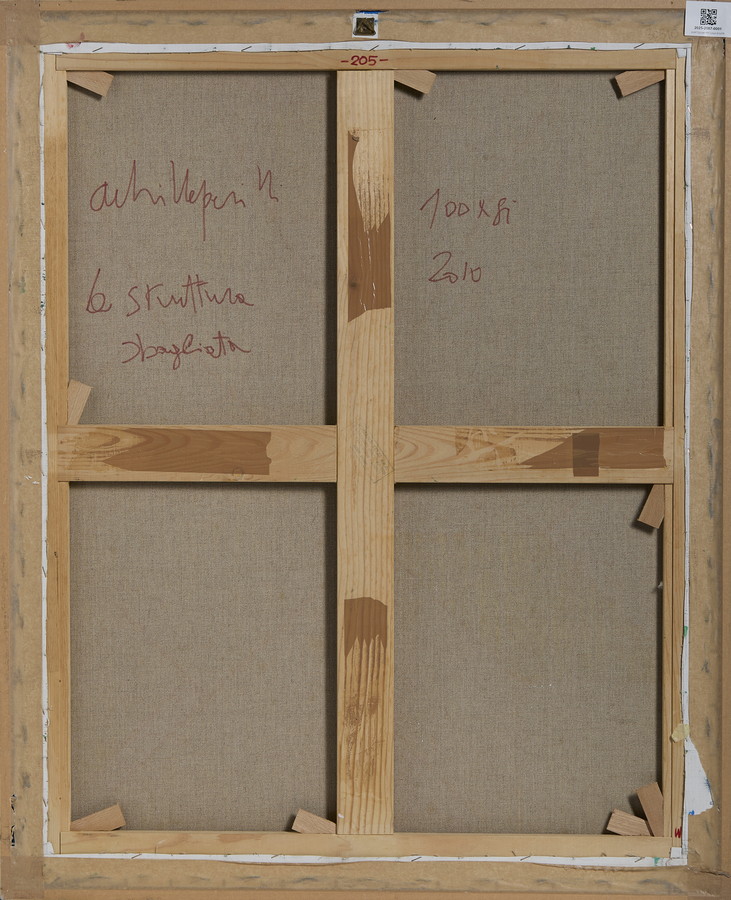 -205-
achilleperilli
100 x 81
2010
la struttura
sbagliata